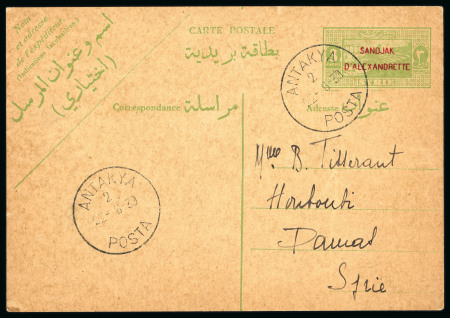 Nom
et adresse
de l'expéditeur
(Indication facultative)
اسم وعنوان المرسل
(اختياري)
CARTE POSTALE
بطاقة بريدية
SANDJAK
D'ALEXANDRETTE
Correspondance مراسلة
Adresse عنوان
ANTAKYA
2
POSTA
ANTAKYA
2
POSTA
Mme B. Tisserant
Houboubi
Damas
Syrie